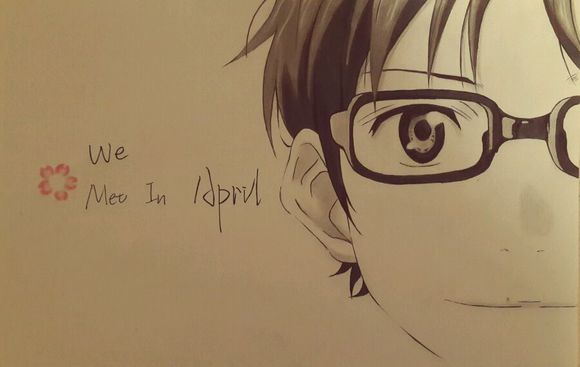 We
Met In April